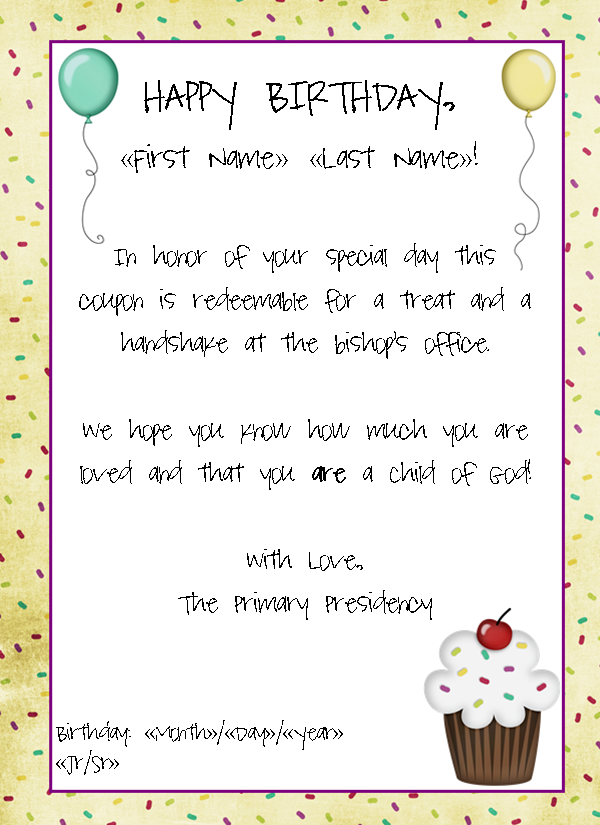 HAPPY BIRTHDAY,
«First Name» «Last Name»!
In honor of your special day this
coupon is redeemable for a treat and a
handshake at the bishop's office.
We hope you know how much you are
loved and that you are a child of God!
With Love,
The Primary Presidency
Birthday: «Month»/«Day»/«Year»
«Jr/Sr»